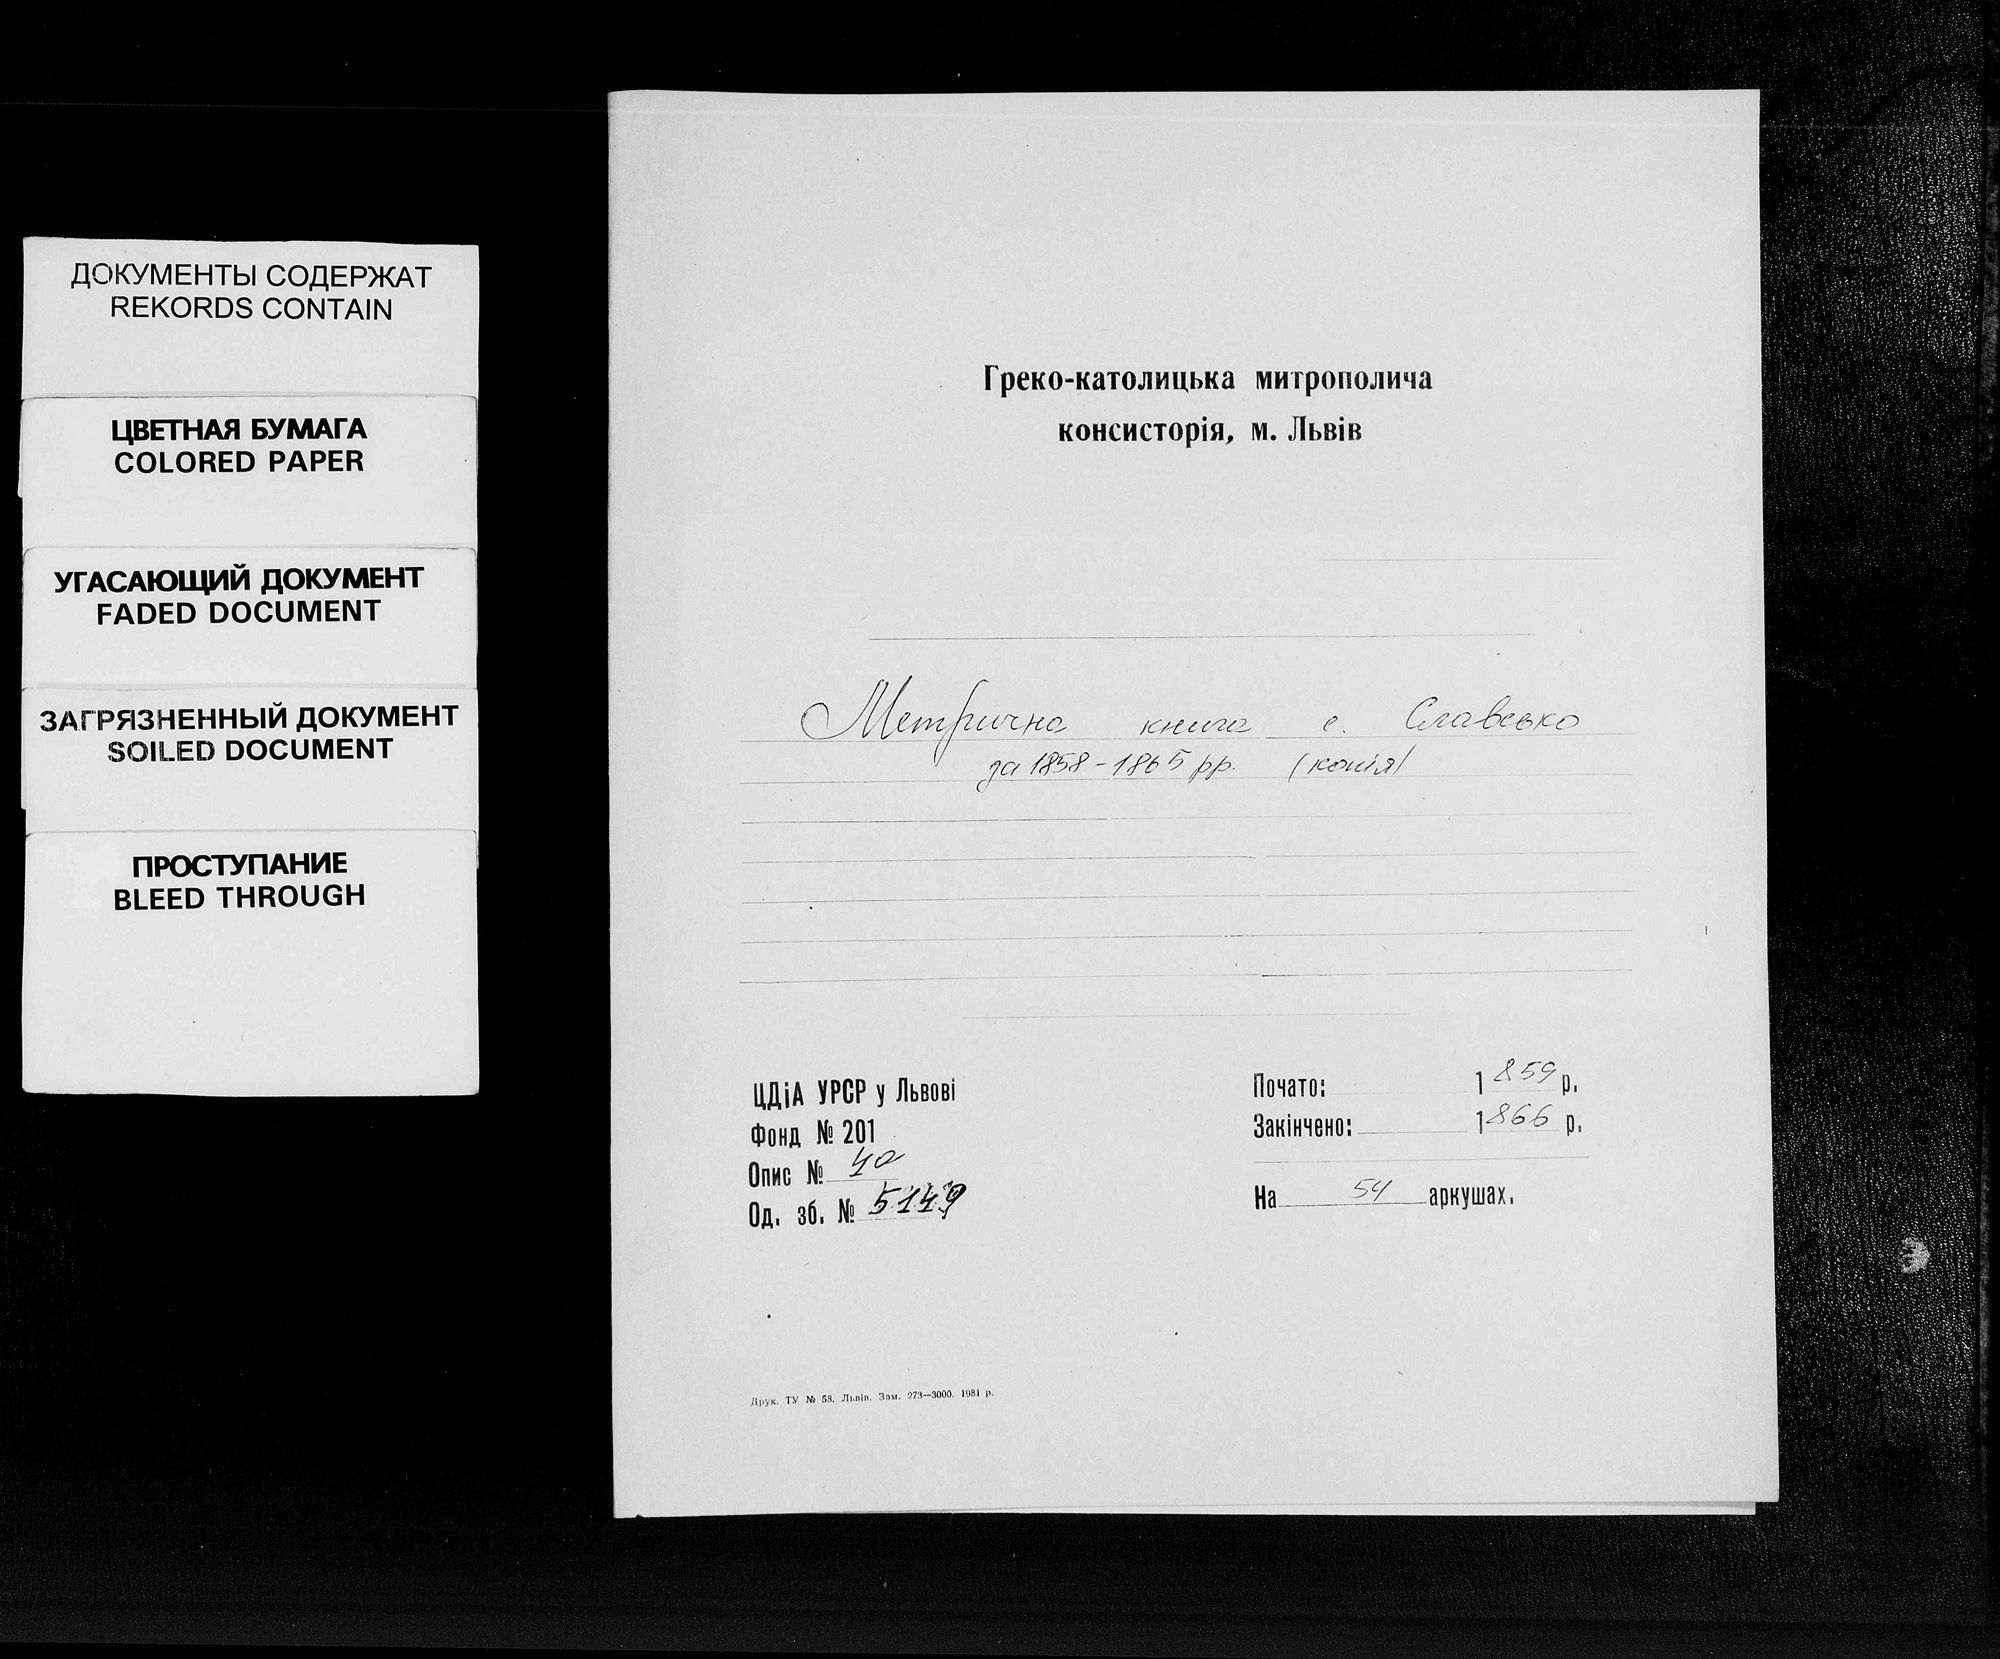 ДОКУМЕНТЫ СОДЕРЖАТ
REKORDS CONTAIN
ЦВЕТНАЯ БУМАГА
COLORED PAPER
УГАСАЮЩИЙ ДОКУМЕНТ
FADED DOCUMENT
ЗАГРЯЗНЕННЫЙ ДОКУМЕНТ
SOILED DOCUMENT
ПРОСТУПАНИЕ
BLEED THROUGH
Греко-католицька митрополича
консисторія, м. Львів
Метрична книга с. Славсько
за 1858-1865 рр. (копія)
ЦДіА УРСР у Львові
Фонд № 201
Опис № 4а
Од. зб. № 5149
Почато: 1859 р.
Закінчено: 1866 р.
На 54 аркушах.
Друк. ТУ № 58. Львів. Зам. 273—3000. 1981 р.